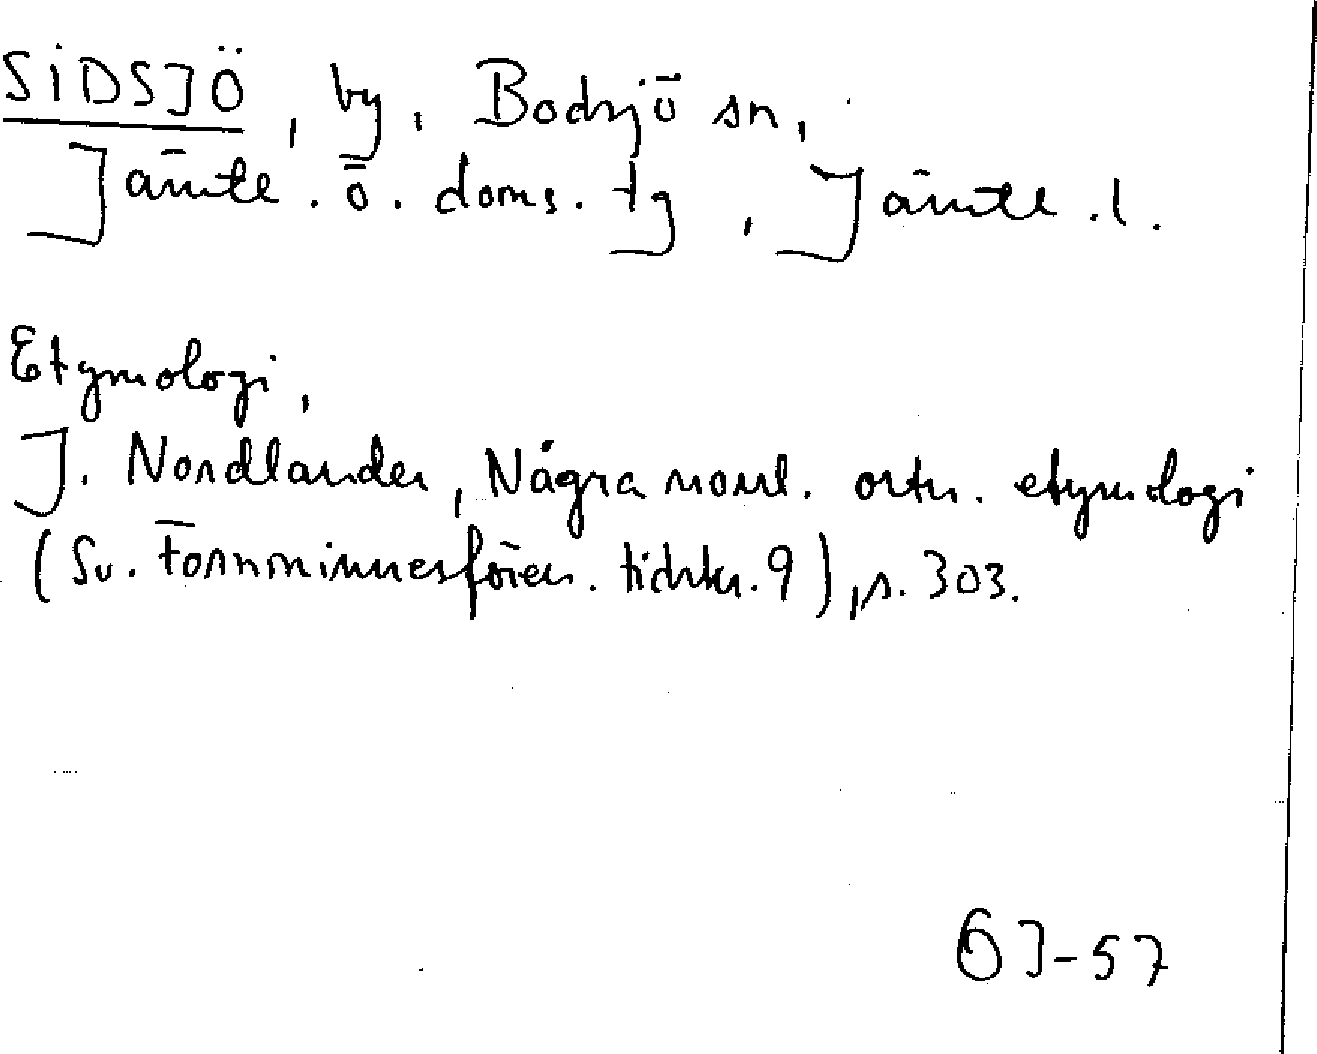 SIDSJÖ, by, Bodsjö sn,
Jämtl. ö. doms. tg, Jämtl. l.
Etymologi,
J. Nordlander, Några norrl. ortn. etymologi
(Sv. Fornminnesfören. tidskr. 9), s. 303.
GJ-57